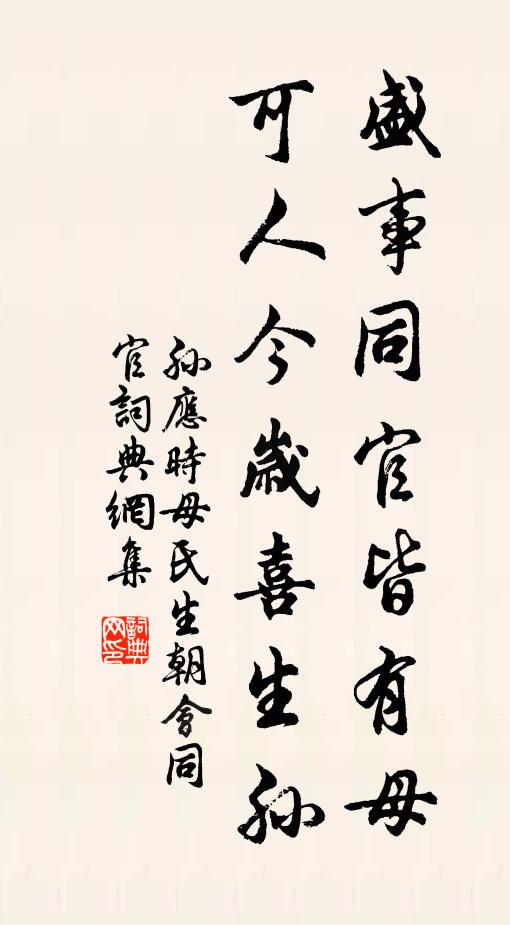 盛事同官皆有母
可人今歲喜生孫
孫應時母氏生朝會同
官詞典網集
詞典
网印